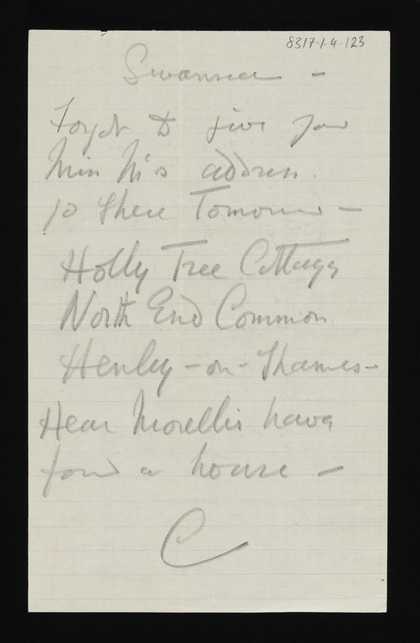 8317.1.4.123
Swansea –
Forgot to give you
Miss M's address.
go there Tomorrow –
Holly Tree Cottage
North End Common
Henley-on-Thames –
Hear Morellis have
found a house –
C